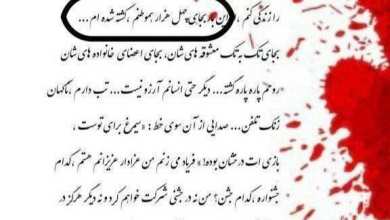 را زندگی کنم ، این بار بجای چهل هزار هموطنم ، کشته شده ام ...
بجای تک به تک معشوقه های شان، بجای اعضای خانواده های شان
روحم پاره پاره گشته... دیگر حتی انسانم آرزو نیست... تب دارم ، ناگهان
زنگ تلفن... صدایی از آن سوی خط: «سیمرغ برای توست ،
بازی ات درخشان بوده!» فریاد می زنم من عزادار عزیزانم هستم ، کدام
جشنواره ، کدام جشن؟ من نه در جشنی شرکت خواهم کرد و نه دیگر هرگز در